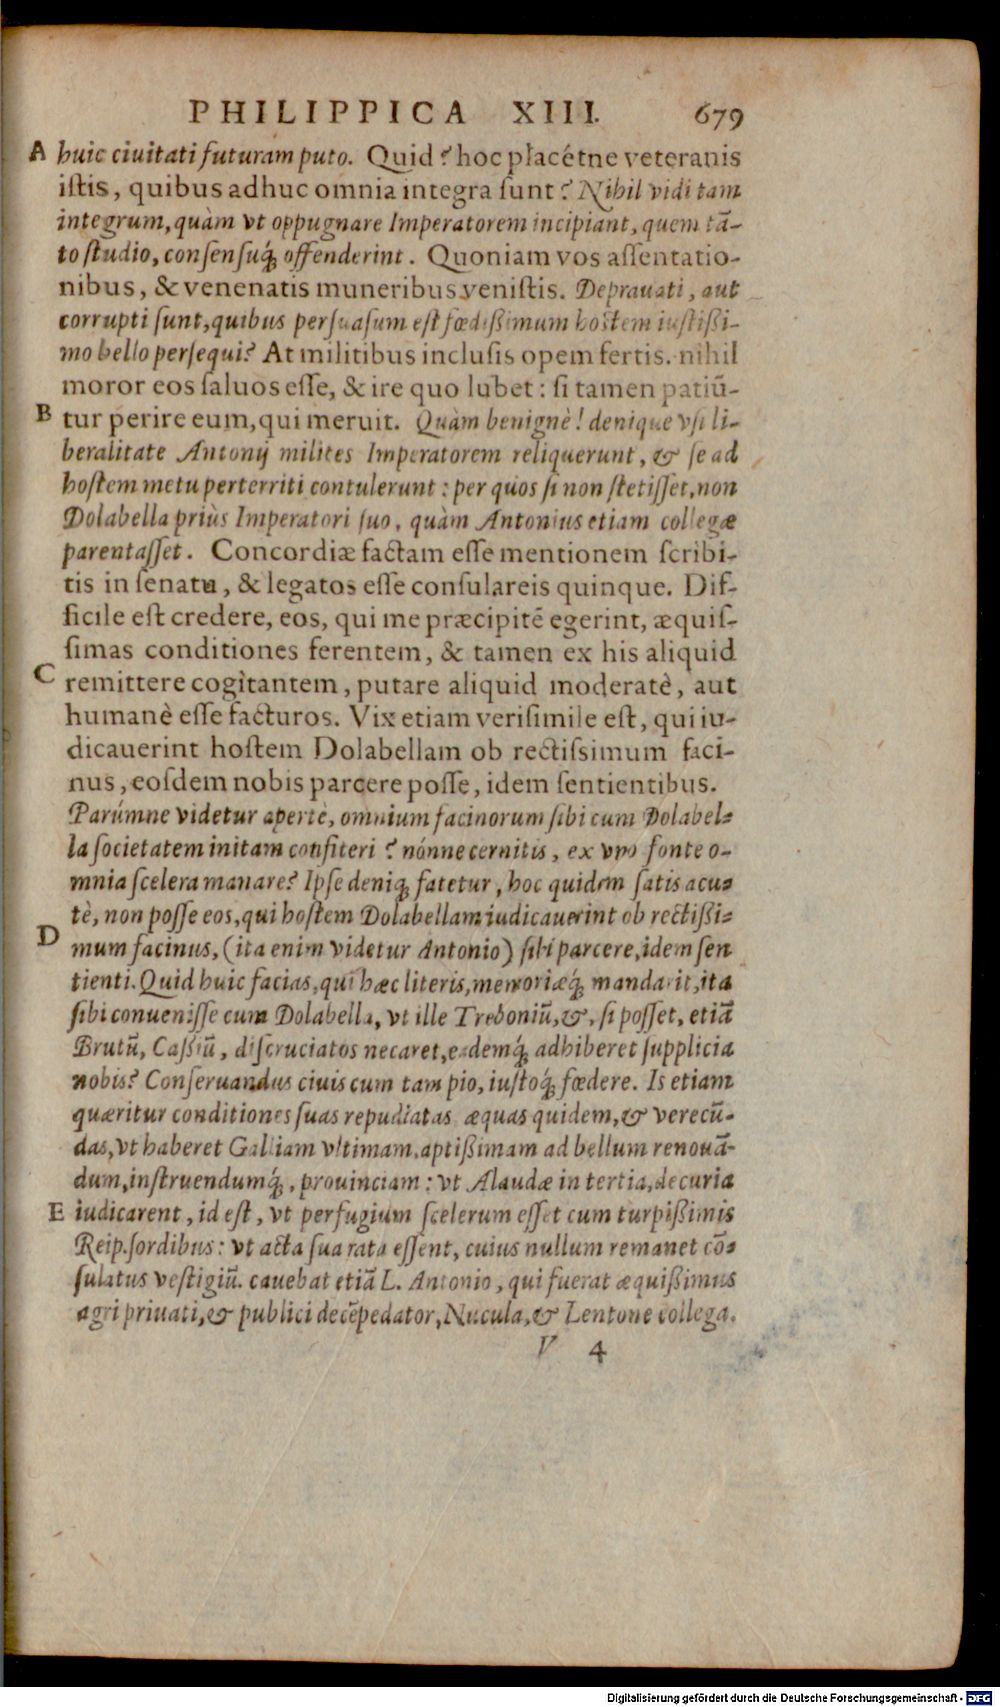 PHILIPPICA XIII. 679
A huic ciuitati futuram puto. Quid? hoc placétne veteranis
istis, quibus adhuc omnia integra sunt? Nihil vidi tam
integrum, quàm vt oppugnare Imperatorem incipiant, quem tã-
to studio, consensuq́; offenderint. Quoniam vos assentatio-
nibus, & venenatis muneribus venistis. Deprauati, aut
corrupti sunt, quibus persuasum est fœdißimum hostem iustißi-
mo bello persequi? At militibus inclusis opem fertis. nihil
moror eos saluos esse, & ire quo lubet: si tamen patiũ-
B tur perire eum, qui meruit. Quàm benignè! denique vsi li-
beralitate Antonij milites Imperatorem reliquerunt, & se ad
hostem metu perterriti contulerunt: per quos si non stetisset, non
Dolabella priùs Imperatori suo, quàm Antonius etiam collegæ
parentasset. Concordiæ factam esse mentionem scribi-
tis in senatu, & legatos esse consulareis quinque. Dif-
ficile est credere, eos, qui me præcipitẽ egerint, æquis-
simas conditiones ferentem, & tamen ex his aliquid
C remittere cogitantem, putare aliquid moderatè, aut
humanè esse facturos. Vix etiam verisimile est, qui iu-
dicauerint hostem Dolabellam ob rectissimum faci-
nus, eosdem nobis parcere posse, idem sentientibus.
Parúmne videtur apertè, omnium facinorum sibi cum Dolabel-
la societatem initam confiteri? nónne cernitis, ex vno fonte o-
mnia scelera manare? Ipse deniq; fatetur, hoc quidem satis acu-
tè, non posse eos, qui hostem Dolabellam iudicauerint ob rectißi-
D mum facinus, (ita enim videtur Antonio) sibi parcere, idem sen
tienti. Quid huic facias, qui hæc literis, memoriæq́; mandarit, ita
sibi conuenisse cum Dolabella, vt ille Treboniũ, &, si posset, etiã
Brutũ, Caßiũ, discruciatos necaret, eademq́; adhiberet supplicia
nobis? Conseruandus ciuis cum tam pio, iustoq́; fœdere. Is etiam
quæritur conditiones suas repudiatas æquas quidem, & verecũ-
das, vt haberet Galliam vltimam, aptißimam ad bellum renouã-
dum, instruendumq́;, prouinciam: vt Alaudæ in tertia, decuria
E iudicarent, id est, vt perfugium scelerum esset cum turpißimis
Reip. sordibus: vt acta sua rata essent, cuius nullum remanet cõ-
sulatus vestigiũ. cauebat etiã L. Antonio, qui fuerat æquißimus
agri priuati, & publici decẽpedator, Nucula, & Lentone collega.
V 4
Digitalisierung gefördert durch die Deutsche Forschungsgemeinschaft - DFG